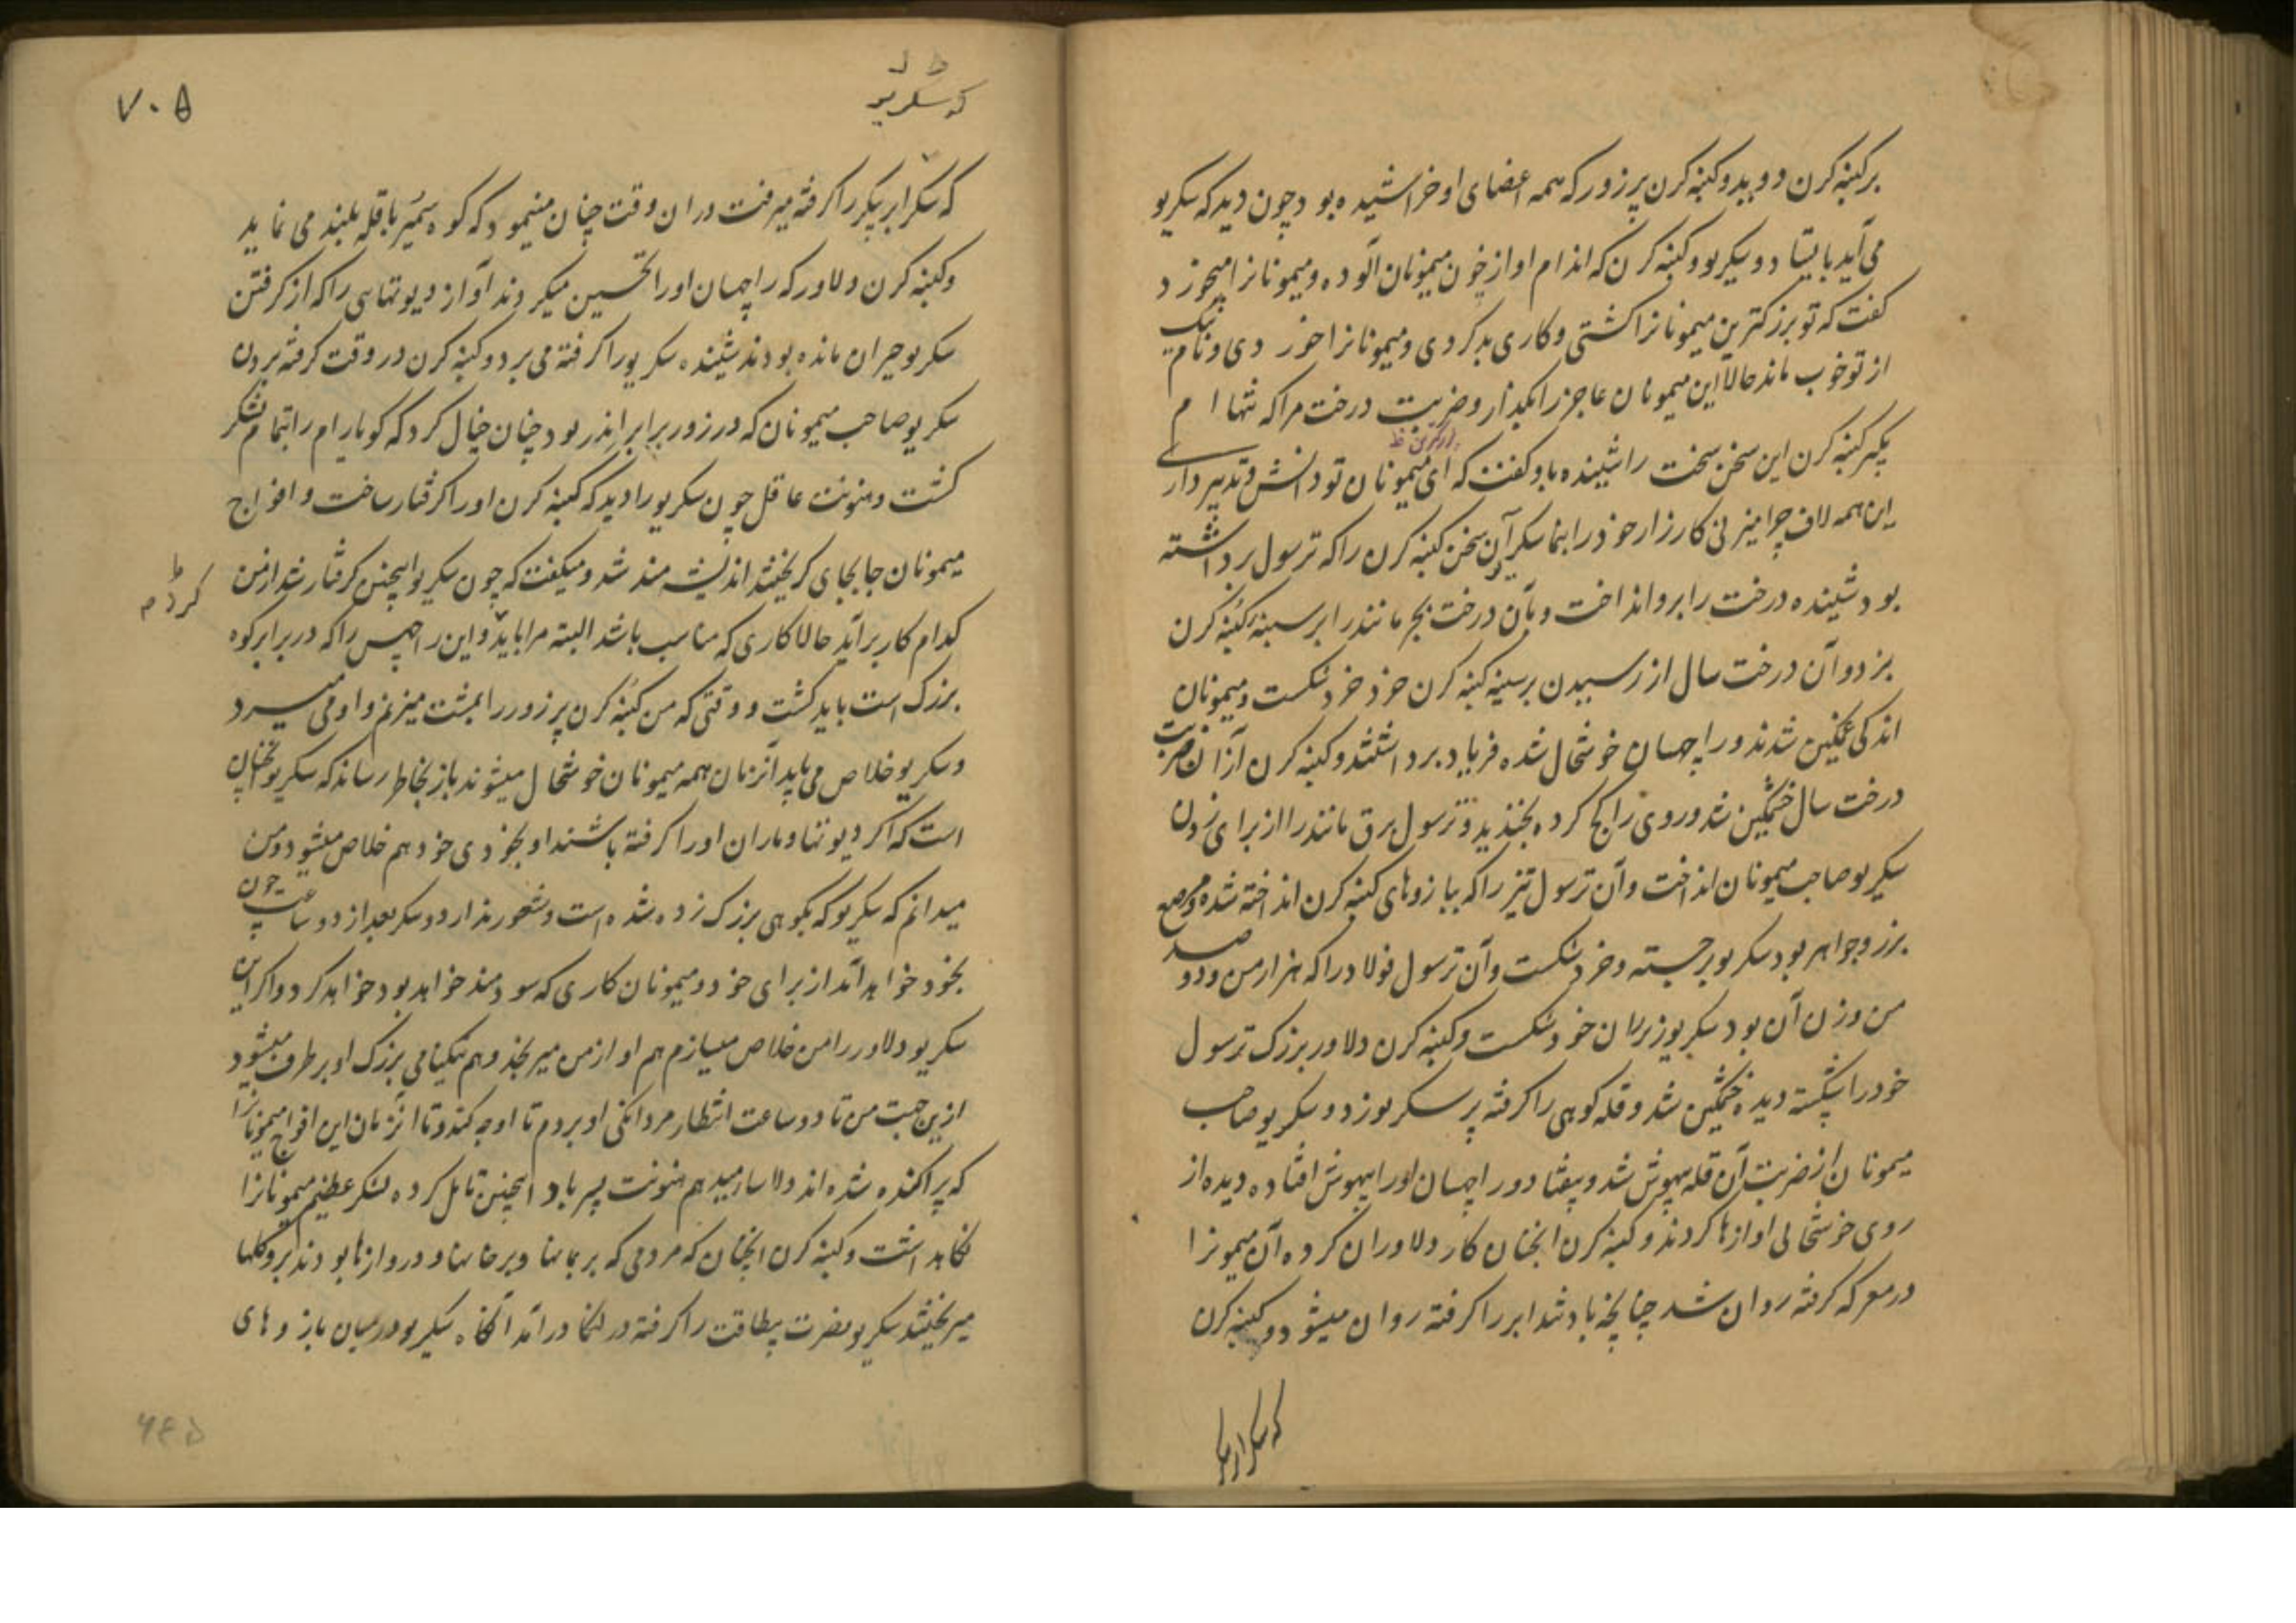 برکنبه کرن دوید و کنبه کرن پرزور که همه اعضای او خراشیده بود چون دید که سکریو
می آید بایستاد و سکریو و کنبه کرن که اندام او از خون میمونان آلوده و میمونانرا میخورد
کفت که تو بزرکترین میمونانرا کشتی و کاری بد کردی و میمونانرا خوردی و نام نیک
از تو خوب ماند حالا این میمونان عاجز را بکذار و ضربت درخت مرا که تنها ام
بکیر کنبه کرن این سخن سخت را شنیده باو کفت که ای میمونان تو دانش و تدبیر داری
این همه لاف چرا میزنی کارزار خود را بنما سکریو آن سخن کنبه کرن را که ترسول برداشته
بود شنیده درخت را برو انداخت و بآن درخت بجر مانند را بر سینه کنبه کرن
بزد و آن درخت سال از رسیدن بر سینه کنبه کرن خرد خرد شکست و میمونان
اندکی غمکین شدند و راچهسان خوشحال شده فریاد برداشتند و کنبه کرن از آن ضربت
درخت سال خشمکین شد و روی را کج کرده بخندید و ترسول برق مانند را از برای زدن
سکریو صاحب میمونان انداخت و آن ترسول تیز را که ببازوهای کنبه کرن انداخته شده و مرصع
بزر و جواهر بود سکریو برجسته و خرد شکست و آن ترسول فولاد را که هزار من و دو صد
من وزن آن بود سکریو بر ران خود شکست و کنبه کرن دلاور بزرک ترسول
خود را شکسته دیده خشمکین شد و قله کوهی را کرفته بر سکریو زد و سکریو صاحب
میمونان از ضربت آن قله بیهوش شد و بیفتاد و راچهسان او را بیهوش افتاده دیده از
روی خوشحالی اوازها کردند و کنبه کرن انچنان کار دلاوران کرده آن میمونرا
در معرکه کرفته روان شد چنانچه باد تند ابر را کرفته روان میشود و کنبه کرن
که سکر ابر پیکر
۷۰۵
که سکریو
که سکر ابر پیکر را کرفته میرفت در ان وقت چنان مینمود که کوه سمیر با قله بلند می نماید
و کنبه کرن دلاور که راچهسان او را تحسین میکردند آواز دیوتهای را که از کرفتن
سکریو حیران مانده بودند شنیده سکریو را کرفته می برد و کنبه کرن در وقت کرفته بردن
سکریو صاحب میمونان که در زور برابر اندر بود چنان خیال کرد که کویا رام را بتمام لشکر
کشت و هنونت عاقل چون سکریو را دید که کنبه کرن او را کرفتار ساخت و افواج
میمونان جابجای کریختند اندیشه مند شد و میکفت که چون سکریو اینچنین کرفتار شد از من
کدام کار برآید حالا کاری که مناسب باشد البته مرا باید و این راچهس را که در برابر کوه
بزرک است باید کشت و وقتی که من کنبه کرن پرزور را بمشت میزنم و او می میرد
و سکریو خلاص می یابد آنزمان همه میمونان خوشحال میشوند باز بخاطر رساند که سکریو انچنان
است که اکر دیوتها و ماران او را کرفته باشند او بخودی خود هم خلاص میشود و من
میدانم که سکریو که بکوهی بزرک زده شده است و شعور ندارد و سکریو بعد از دو ساعت چون
بخود خواهد آمد از برای خود و میمونان کاری که سودمند خواهد بود خواهد کرد و اکر این
سکریو دلاور را من خلاص میسازم هم او از من میرنجد و هم نیکنامی بزرک او برطرف میشود
ازین جهت من تا دو ساعت انتظار مردانکی او برم تا او چه کند و تا انزمان این افواج میمونانرا
که پراکنده شده اند دلاسا میدهم هنونت پسر باد اینچنین تامل کرده لشکر عظیم میمونانرا
نکاهداشت و کنبه کرن انچنان که مردمی که بر بامها و برخانها و دروازها بودند برو کلها
میریختند سکریو بضربت بیطاقت را کرفته در لنکا درآمد آنکاه سکریو در میان بازوهای
کردم